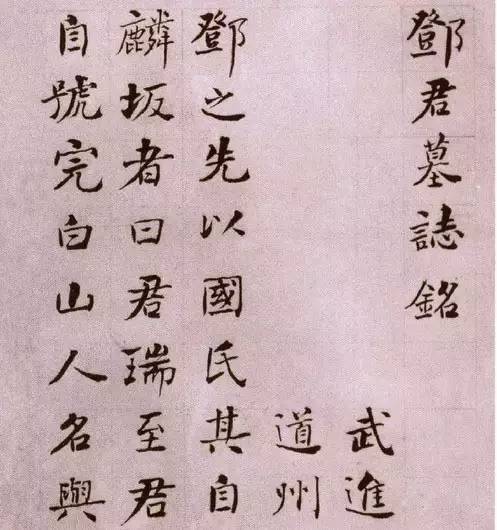 鄧君墓誌銘
武進
道州
鄧之先以國氏其自
麟坂者曰君瑞至君
自號完白山人名與